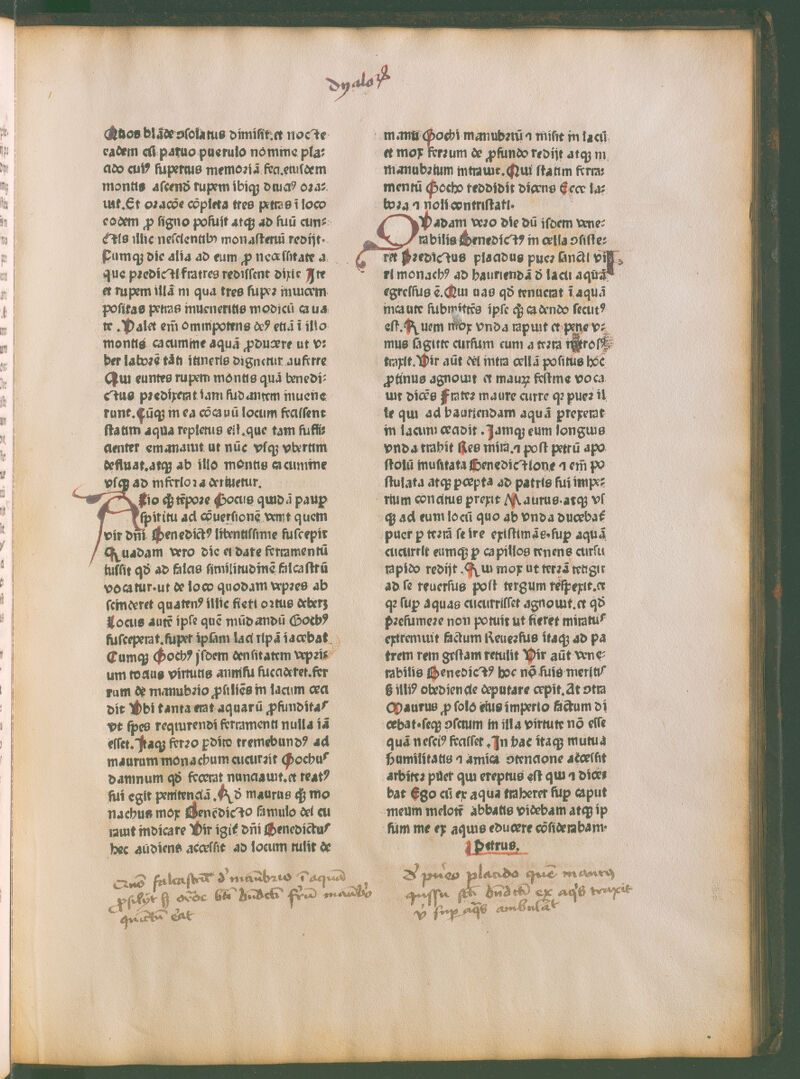 dyaloꝝ
Quos blāde ↄſolatus dimiſit.et nocte
eadem cū paruo puerulo nomine pla⸗
cido cuiꝰ ſuperius memoriā feci.eiuſdem
montis aſcendit rupem ibiqꝫ diutiꝰ ora⸗
uit.Et oracōe cōpleta tres petras ī loco
eodem ꝓ ſigno poſuit atqꝫ ad ſuū cun⸗
ctis illic neſcientibꝰ monaſteriū redijt.
Cumqꝫ die alia ad eum ꝓ neceſſitate a
que predicti fratres rediſſent dixit Ite
et rupem illā in qua tres ſuper inuicem
poſitas petras inueneritis modicū caua
te. Valet em̄ omnipotens deꝰ etiā ī illo
montis cacumine aquā ꝓducere ut v⸗
ber laborē tāti itineris dignetur auferre
Qui euntes rupem montis quā benedi⸗
ctus predixerat iam ſudantem inuene
runt.Cūqꝫ in ea cōcauū locum feciſſent
ſtatim aqua repletus eſt.que tam ſuffi⸗
cienter emanauit ut nūc vſqꝫ vbertim
defluat.atqꝫ ab illo montis cacumine
vſqꝫ ad inferiora deriuetur.
Alio qꝫ tꝑore Gocus quidā pauꝑ
ſpiritu ad cōuerſionē venit quem
vir dn̄i Benedictꝰ libentiſſime ſuſcepit
Quadam vero die ei dare ferramentū
iuſſit qd̄ ad falcis ſimilitudinē falcaſtrū
vocatur.ut de loco quodam vepres ab
ſcinderet quatenꝰ illic fieri ortus deberꝫ
Locus autē ipſe quē mūdandū Gothꝰ
ſuſceperat.ſuper ipſam laci ripā iacebat
Cumqꝫ Gochꝰ jſdem denſitatem vepriū
um totius virtutis anniſu ſuccideret.fer
rum de manubrio ꝓſiliēs in lacum ceci
dit Vbi tanta erat aquarū ꝓfunditaſ
vt ſpes requirendi ferramenti nulla iā
eſſet.Itaqꝫ ferro ꝑdito tremebundꝰ ad
maurum monachum cucurrit Gochuſ
damnum qd̄ fecerat nunciauit.et reatꝰ
ſui egit penitenciā.Qd̄ maurus qꝫ mo
nachus mox Benedicto famulo dei cu
rauit indicare Vir igiꞇ̉ dn̄i Benedictuſ
hec audiens acceſſit ad locum tulit de
manu Gochi manubriū ⁊ miſit in lacū
et mox ferrum de ꝓfundo redijt atqꝫ in
manubrium intrauit.Qui ſtatim ferra⸗
mentū Gocho reddidit dicens Ecce la⸗
bora ⁊ noli contriſtari.
QVadam vero die dū iſdem vene⸗
rabilis Benedictꝰ in cella ↄſiſte⸗
ret Predictus placidus puer ſancti vi
ri monachꝰ ad hauriendā d̄ lacu aquā
egreſſus ē.Qui uas qd̄ tenuerat ī aquā
incaute ſubmittēs ipſe qꝫ cadendo ſecutꝰ
eſt.Quem mox vnda rapuit et pene v⸗
nius ſagitte curſum eum a terra introſꝰ
traxit.Vir aūt dei intra cellā poſitus hoc
ꝓtinus agnouit et maurꝫ feſtine voca
uit dicēs Frater maure curre qꝛ puer il
le qui ad hauriendam aquā prexerat
in lacum cecidit .Iamqꝫ eum longius
vnda trahit Res mira.⁊ poſt petrū apo
ſtolū inuſitata Benedictione ⁊ em̄ po
ſtulata atqꝫ ꝑcepta ad patris ſui impe⸗
rium concitus prexit Maurus.atqꝫ vſ
qꝫ ad eum locū quo ab vnda ducebaꞇ̉
puer ꝑ terrā ſe ire exiſtimās.ſuꝑ aquā
cucurrit eumqꝫ ꝑ capillos tenens curſu
rapido redijt .Qui mox ut terrā tetigit
ad ſe reuerſus poſt tergum reſpexit.et
qꝛ ſuꝑ aquas cucurriſſet agnouit.et qd̄
preſumere non potuit ut fieret miratuſ
extremuit factum Reuerſus itaqꝫ ad pa
trem rem geſtam retulit Vir aūt vene⸗
rabilis Benedictꝰ hoc nō ſuis meritiſ
ſꝫ illiꝰ obediencie deputare cepit.At ↄtra
Maurus ꝓ ſolo eius imperio factum di
cebat.ſeqꝫ ↄſcium in illa virtute nō eſſe
quā neſciꝰ feciſſet.In hac itaqꝫ mutua
humilitatis ⁊ amica ↄtencione acceſſit
arbiter puer qui ereptus eſt qui ⁊ dicēs
bat Ego cū ex aqua traherer ſuꝑ caput
meum meloꞇē abbatis videbam atqꝫ ip
ſum me ex aquis educere cōſiderabam.
Petrus.
falcaſtrū d̓ manubrio ī aquā
ꝓſilijt
d̓ puero placido quē maurꝰ
iuſſu ſcī bn̄dcī ex aqͥs traxit
ꝟ ſuꝑ aqͣs ambulāt